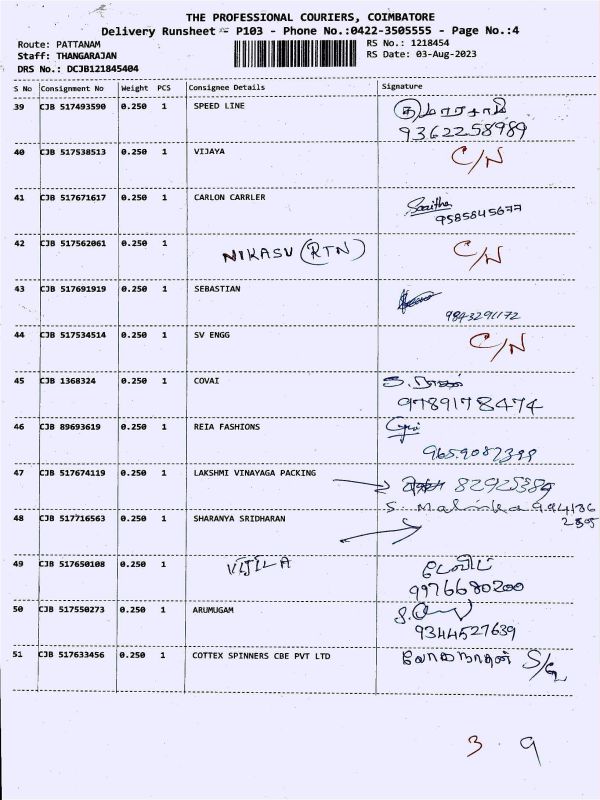 THE PROFESSIONAL COURIERS, COIMBATORE
Delivery Runsheet - P103 - Phone No.:0422-3505555 - Page No.:4
Route: PATTANAM RS No.: 1218454
Staff: THANGARAJAN RS Date: 03-Aug-2023
DRS No.: DCJB121845404
S No Consignment No Weight PCS Consignee Details Signature
39 CJB 517493590 0.250 1 SPEED LINE குமாரசாமி
9362258989
40 CJB 517538513 0.250 1 VIJAYA C/N
41 CJB 517671617 0.250 1 CARLON CARRLER
9585845677
42 CJB 517562061 0.250 1 NIKASU (RTN) C/N
43 CJB 517691919 0.250 1 SEBASTIAN
9843291172
44 CJB 517534514 0.250 1 SV ENGG C/N
45 CJB 1368324 0.250 1 COVAI
9789178474
46 CJB 89693619 0.250 1 REIA FASHIONS
47 CJB 517674119 0.250 1 LAKSHMI VINAYAGA PACKING
48 CJB 517716563 0.250 1 SHARANYA SRIDHARAN
49 CJB 517650108 0.250 1 VIJILA டேவிட்
9976680200
50 CJB 517550273 0.250 1 ARUMUGAM
9344527639
51 CJB 517633456 0.250 1 COTTEX SPINNERS CBE PVT LTD
3 . 9